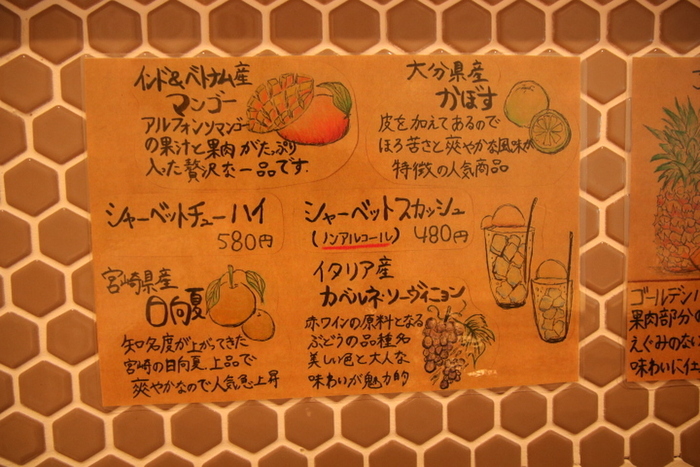 インド&ベトナム産
マンゴー
アルフォンソマンゴー
の果汁と果肉がたっぷり
入った贅沢な一品です.
大分県産
かぼす
皮を加えてあるので
ほろ苦さと爽やかな風味が
特徴の人気商品
シャーベットチューハイ
580円
シャーベットスカッシュ
(ノンアルコール) 480円
宮崎県産
日向夏
知名度が上がってきた
宮崎の日向夏.上品で
爽やかなので人気急上昇
イタリア産
カベルネ・ソーヴィニョン
赤ワインの原料となる
ぶどうの品種名
美しい色と大人な
味わいが魅力的
ゴールデン
果肉部分の
えぐみのない
味わいに仕